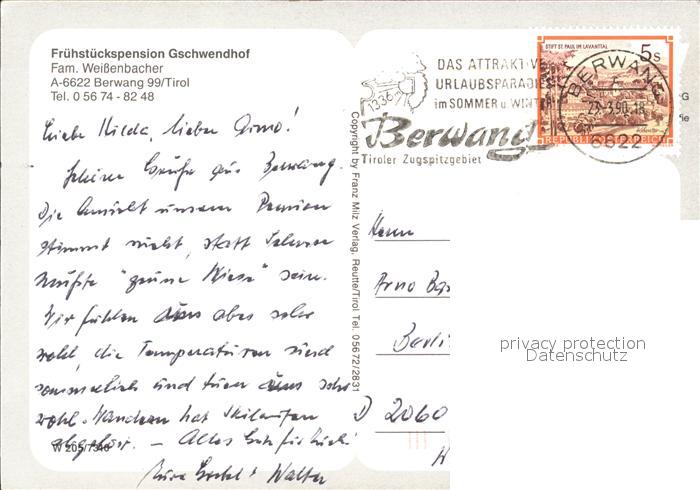 Frühstückspension Gschwendhof
Fam. Weißenbacher
A-6622 Berwang 99/Tirol
Tel. 0 56 74 - 82 48
Liebe Hilda, lieber Arno!
Schöne Grüße aus Berwang.
Die Ansicht unserer Pension
stimmt nicht, statt Schnee
müßte "grüne Wiese" sein.
Wir fühlen uns aber sehr
wohl, die Temperaturen sind
sommerlich und tuen uns sehr
wohl. Wandern hat Skilaufen
abgelöst. – Alles Gute für Euch!
Eure Walter
W 205/7346
Copyright by Franz Milz Verlag, Reutte/Tirol Tel. 05672/2831
DAS ATTRAKTIVE
URLAUBSPARADIES
im SOMMER u. WINTER
1336 m
Berwang
Tiroler Zugspitzgebiet
STIFT ST. PAUL IM LAVANTTAL
5 S
REPUBLIK ÖSTERREICH
BERWANG
27.-3.90-18
6622
Herrn
Arno
D 2060
privacy protection
Datenschutz